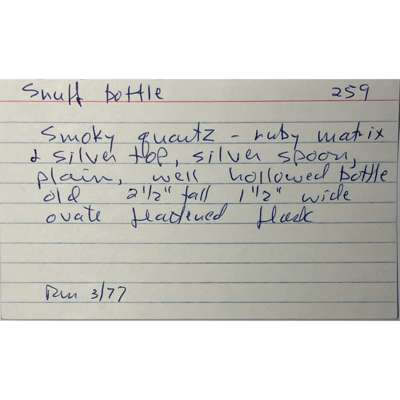 Snuff bottle 259
Smoky quartz - ruby matrix
& silver top, silver spoon,
plain, well hollowed bottle
old 2 1/2" tall 1 1/2" wide
ovate flattened flask
3/77